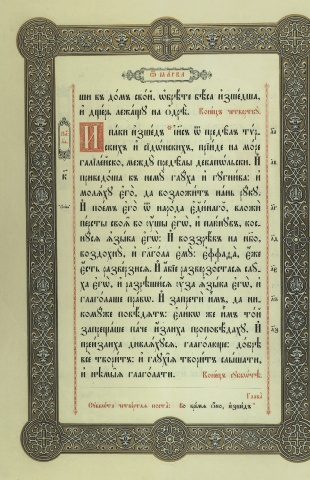 Ѿ МАРКА
ши въ домъ свой, ѡбрѣте бѣса изшедша,
и дщерь лежащу на ѻдрѣ. Конецъ четвертку.
И паки изшедъ іи҃съ ѿ предѣлъ тѵр-
скихъ и сідѡнскихъ, прїиде на море
галїлейско, между предѣлы декапѡльски. И
приведоша къ нему глуха и гугнива: и
моляху его, да возложитъ нань руку.
И поемъ его ѿ народа единаго, вложи
персты своя во ушы его, и плюнувъ, кос-
нуся языка его: И воззрѣвъ на нбо,
воздохну, и глагола ему: еффаѳа, еже
есть разверзися. И абїе разверзостася слу-
ха его, и разрѣшися уза языка его, и
глаголаше право. И запрети имъ, да ни-
комуже повѣдятъ: елико же имъ той
запрещаше паче излиха проповѣдаху. И
преизлиха дивляхуся, глаголюще: добрѣ
все творитъ: и глухїя творитъ слышати,
и нѣмыя глаголати. Конецъ субботѣ.
Глава
Суббота четвертая поста: Во время оно, изшедъ